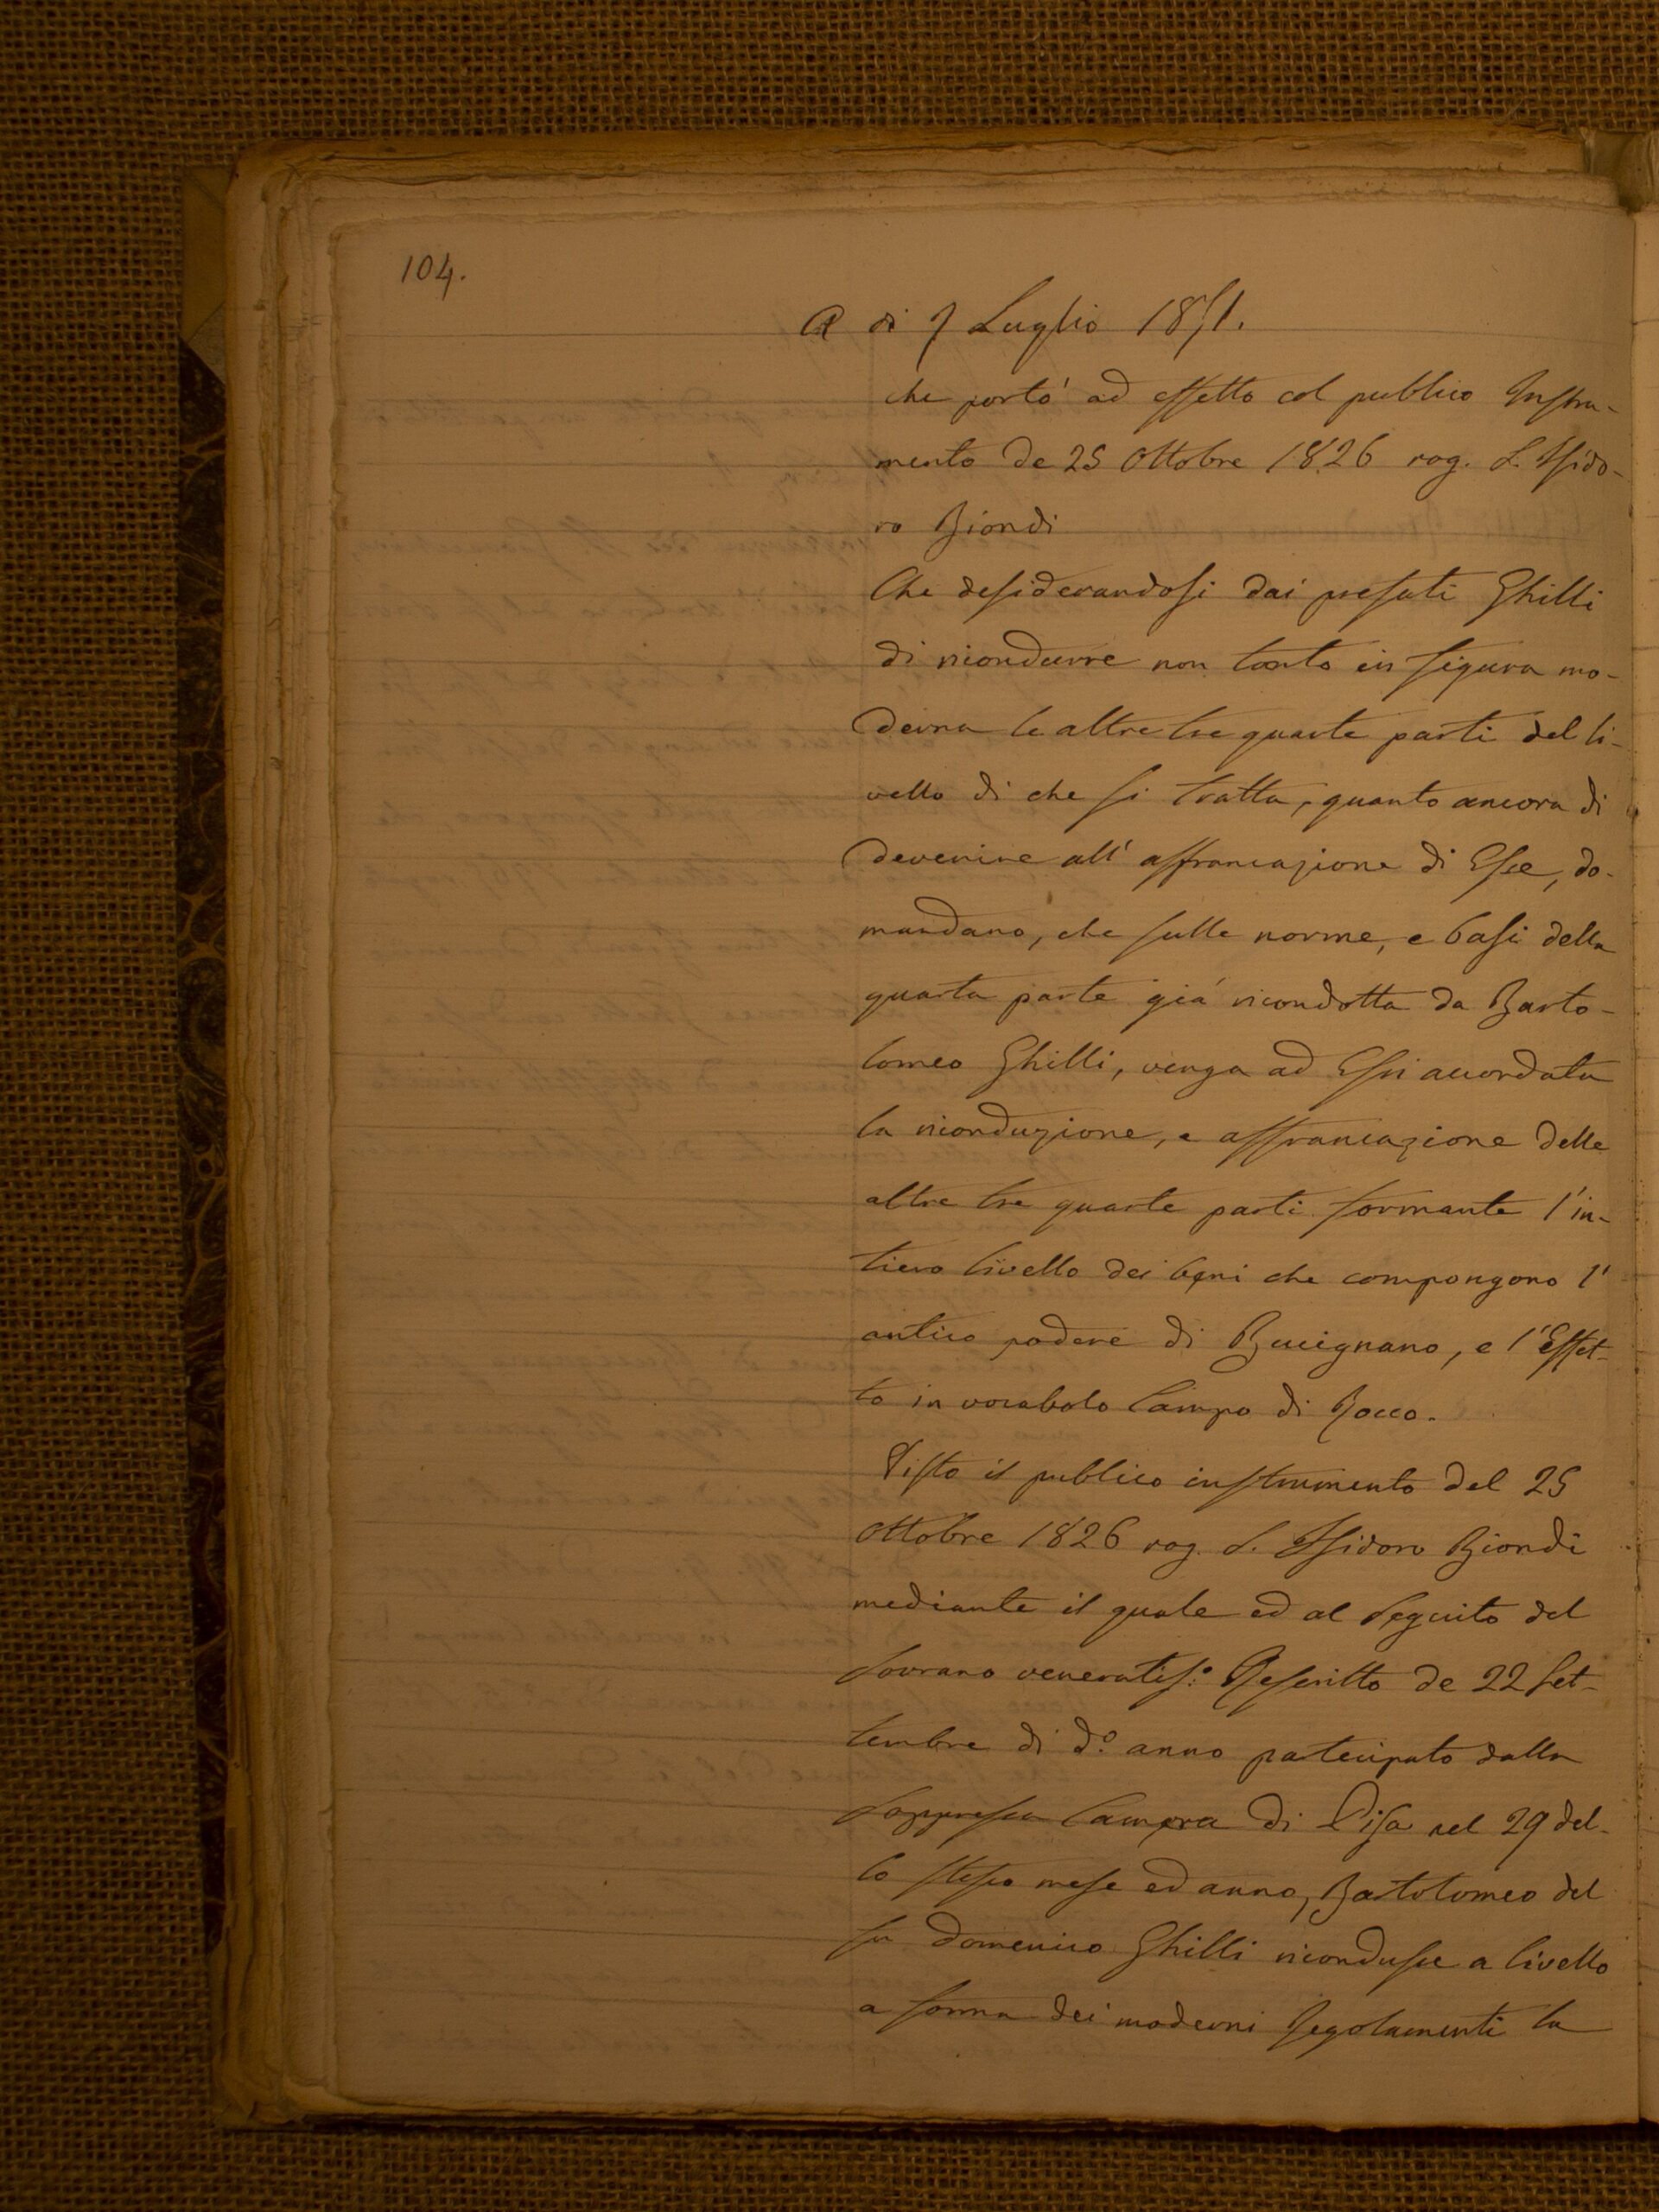 104.
A di 7 Luglio 1851.
che portò ad effetto col publico Instru-
mento de 25 Ottobre 1826 rog. S. Isido-
ro Biondi
Che desiderandosi dai prefati Ghilli
di ricondurre non tanto in figura mo-
derna le altre tre quarte parti del li-
vello di che si tratta, quanto ancora di
devenire all' affrancazione di Esse, do-
mandano, che sulle norme, e basi della
quarta parte già ricondotta da Barto-
lomeo Ghilli, venga ad Essi accordata
la riconduzione, e affrancazione delle
altre tre quarte parti formante l'in-
tiero livello dei beni che compongono l'
antico podere di Bucignano, e l'Effet-
to in vocabolo Campo di Rocco.
Visto il publico instrumento del 25
Ottobre 1826 rog. S. Isidoro Biondi
mediante il quale ed al seguito del
Sovrano veneratis:º Rescritto de 22 Set-
tembre di d.º anno partecipato dalla
Soppressa Camera di Pisa nel 29 del-
lo stesso mese ed anno, Bartolomeo del
fu Domenico Ghilli ricondusse a livello
a forma dei moderni Regolamenti la